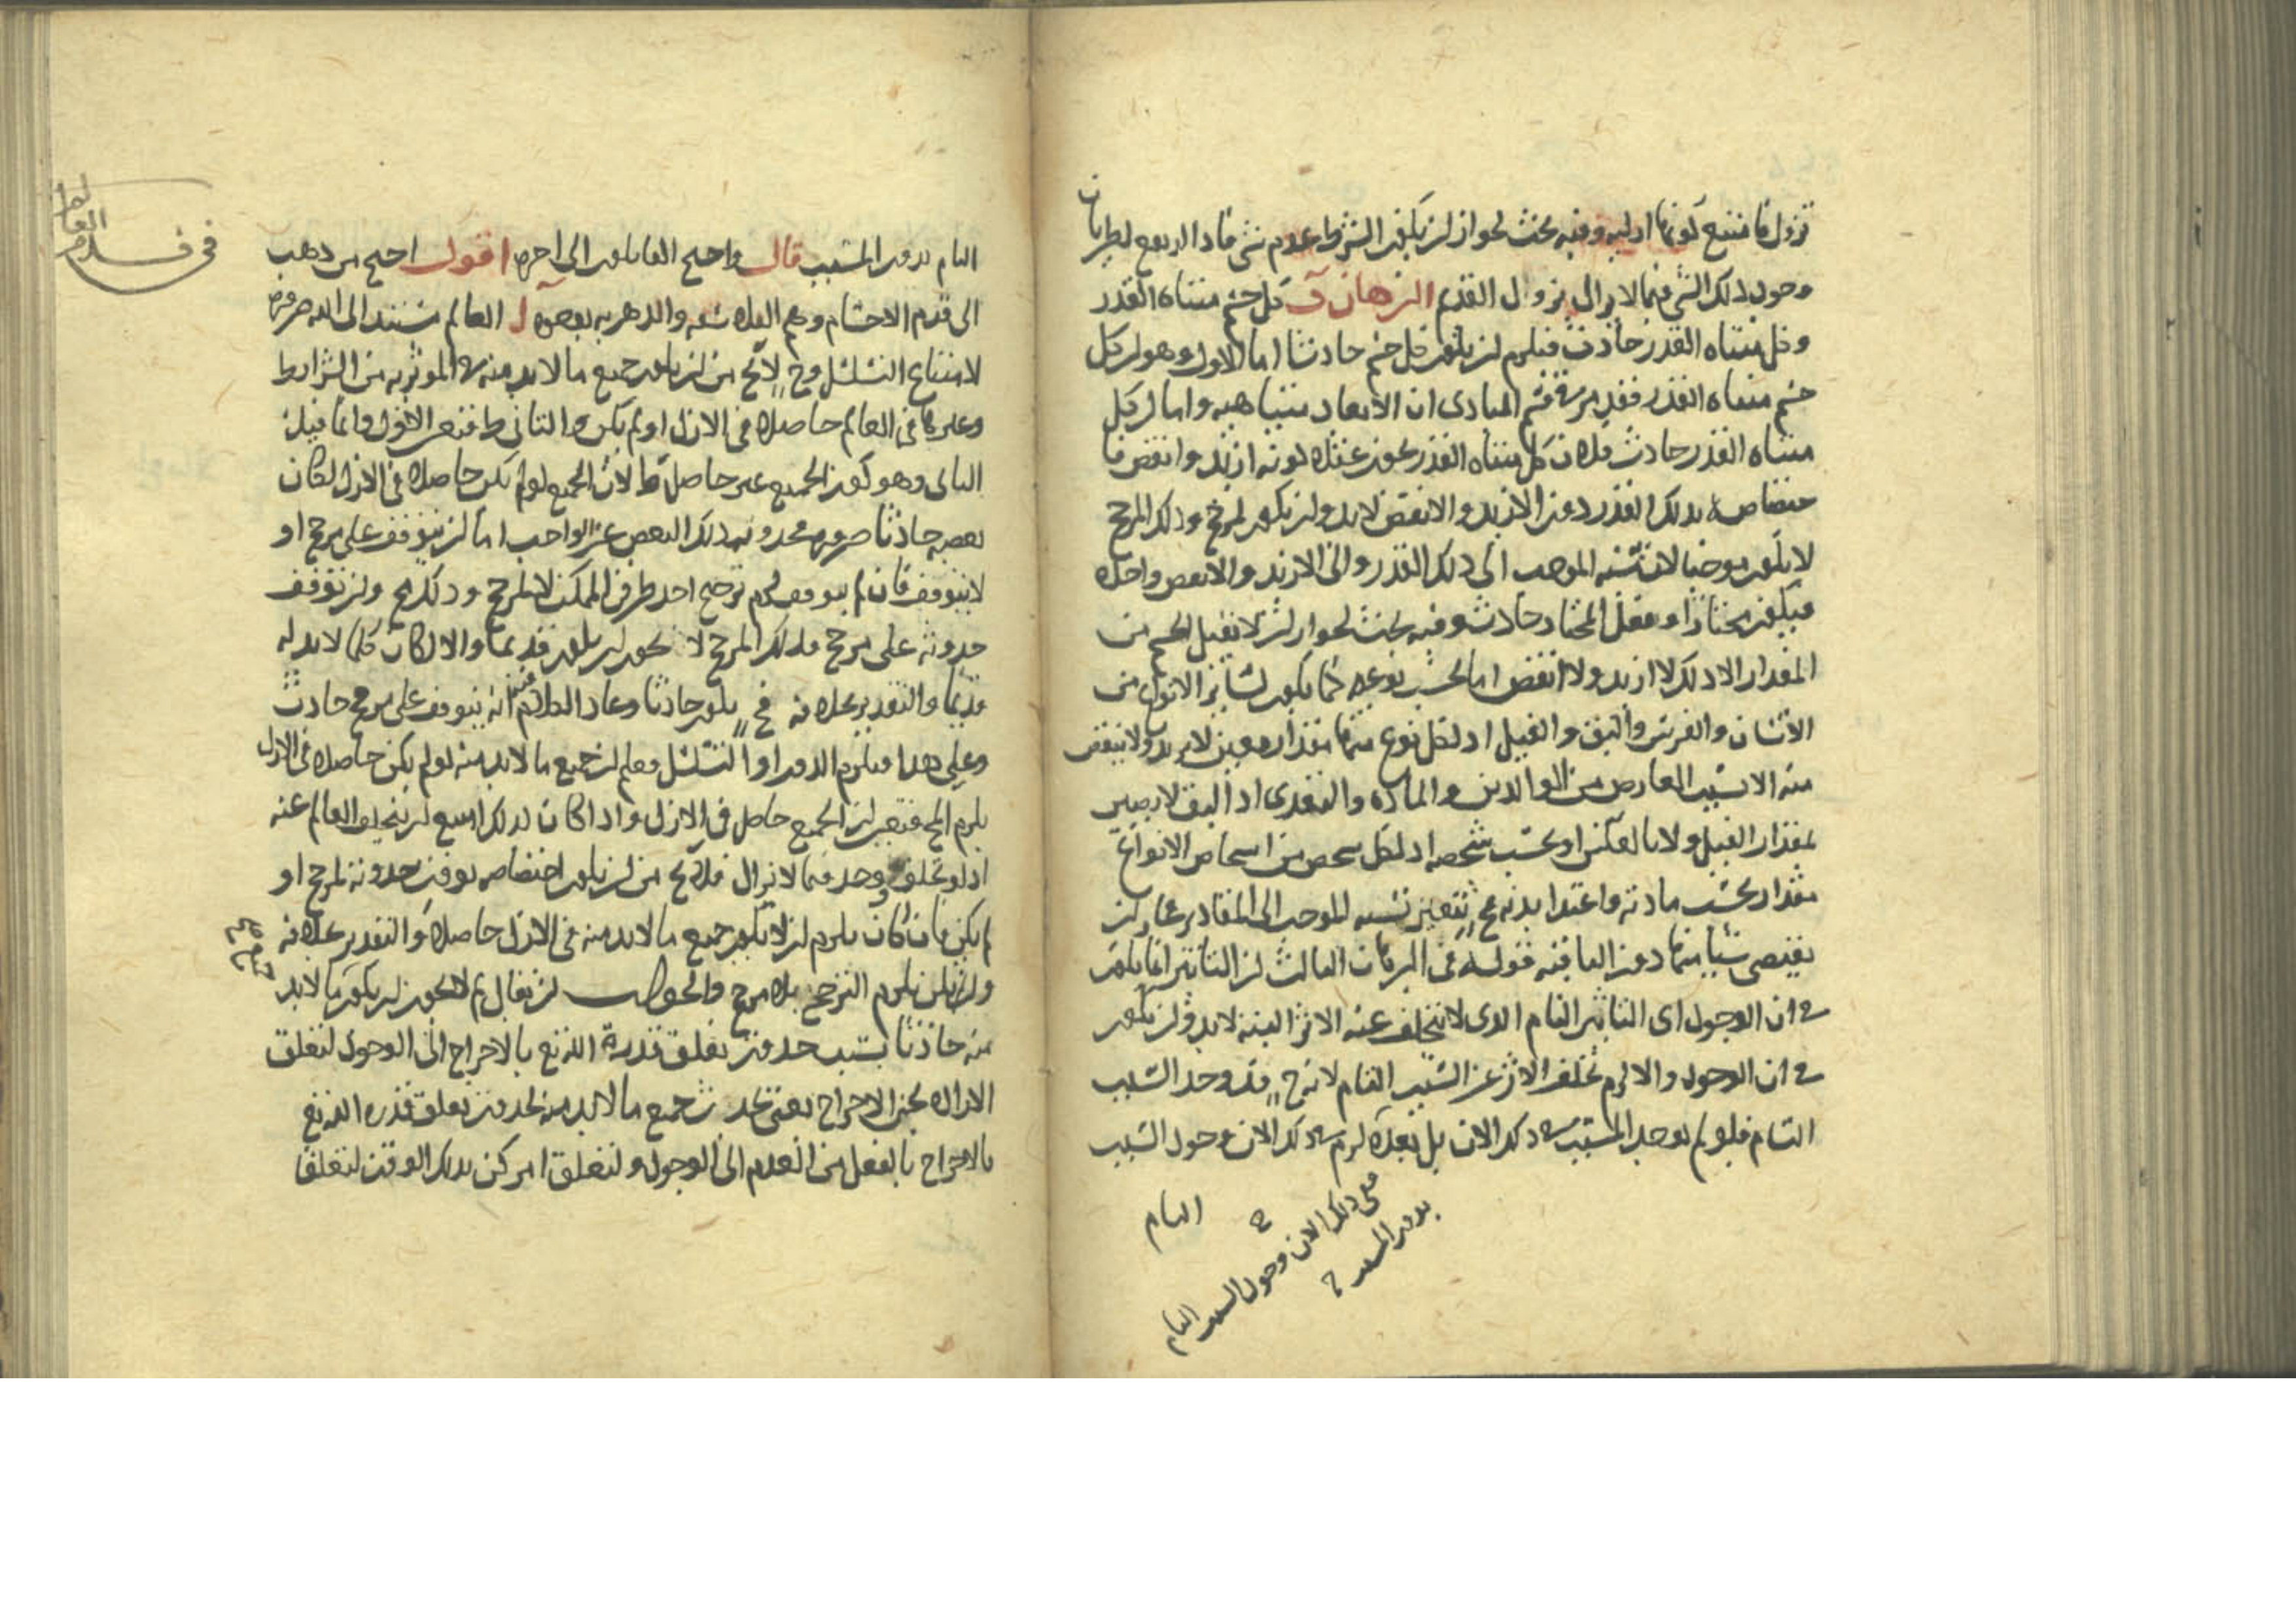 تزول فامتنع كونها ازلية وفيه بحث لجواز ان يكون الشرط عدم شي فاذا ارتفع لطريان
وجود ذلك الشي فيما لا يزال يزول القديم البرهان كل جسم متناه القدر
وكل متناه القدر حادث فيلزم ان يكون كل جسم حادثا اما الاول وهو ان كل
جسم متناه القدر فقد مر في قسم المبادى ان الابعاد متناهية واما ان كل
متناه القدر حادث فلان كل متناه القدر يجوز عقلا كونه ازيد وانقص فا
ختصاصه بذلك القدر دون الازيد والانقص لا بد وان يكون لمرجح وذلك المرجح
لا يكون موجبا لان نسبة الموجب الى ذلك القدر والى الازيد والانقص واحدة
فيكون مختارا وفعل المختار حادث وفيه بحث لجواز ان لا يقبل الجسم من
المقدار الا ذلك لا ازيد ولا انقص اما بحسب نوعه كما يكون لسائر الانواع من
الانسان والفرس والبق والفيل اذ لكل نوع منها مقدار معين لا يزيد ولا ينقص
منه الا بسبب العارض من الوالدين والمادة والتغذى اذ البق لا يصير
بمقدار الفيل ولا بالعكس او بحسب شخصه اذ لكل شخص من اشخاص الانواع
مقدار بحسب مادته واعتدا بدنه فح يتعين نسبة الموجب الى المقادير فجاز ان
يقتضى شيا منها دون الباقية قوله فى البرهان الثالث ان التاثير انما يكون
فى ان الوجود اى التاثير التام الذى لا يتخلف عنه الاثر البتة لا بد وان يكون
فى ان الوجود والا لزم تخلف الاثر عن السبب التام لانه ح قد وجد السبب
التام فلو لم يوجد المسبب فى ذلك الان بل بعده لزم فى ذلك الان وجود السبب
التام
فى ذلك الان وجود السبب التام
بدون المسبب
فى قدم العالم
التام بدون المسبب قال واحتج القايلون الى اخره اقول احتج من ذهب
الى قدم الاجسام وهم الفلاسفة والدهرية بوجوه ا العالم مستند الى الله ضرورة
لامتناع التسلسل وح لا يخ من ان يكون جميع ما لا بد منه فى المؤثرية من الشرايط
وغيرها فى العالم حاصلة فى الازل او لم يكن والثانى ط فتعين الاول وانما قيل
الثانى وهو كون الجميع غير حاصل ط لان الجميع لو لم يكن حاصلا فى الازل لكان
بعضه حادثا ضرورة فحدوث ذلك البعض عن الواجب اما ان يتوقف على مرجح او
لا يتوقف فان لم يتوقف لزم ترجيح احد طرفى الممكن لا لمرجح وذلك مح وان توقف
حدوثه على مرجح فذلك المرجح لا يجوز ان يكون قديما والا لكان كلما لا بد له
قديما والتقدير خلافه فح يكون حادثا وعاد الكلام فيه انه يتوقف على مرجح حادث
وعلى هذا فيلزم الدور او التسلسل فعلم ان جميع ما لا بد منه لو لم يكن حاصلا فى الازل
يلزم المح فتعين ان الجميع حاصل فى الازل واذا كان كذلك امتنع ان يتخلف العالم عنه
اذ لو تخلف ووجد فيما لا يزال فلا يخ من ان يكون اختصاصه بوقت حدوثه لمرجح او
لم يكن فان كان يلزم ان لا يكون جميع ما لا بد منه فى الازل حاصلا والتقدير خلافه
وان لم يكن يلزم الترجيح بلا مرجح والجواب ان يقال لم لا يجوز ان يكون ما لا بد
منه حادثا بسبب حدوث تعلق قدرة الله تع بالاخراج الى الوجود لتعلق
الارادة بحين الاخراج يعنى يحدث جميع ما لا بد منه لحدوث تعلق قدرة الله تع
بالاخراج بالفعل من العدم الى الوجود ولتعلق امر كن بذلك الوقت لتعلق